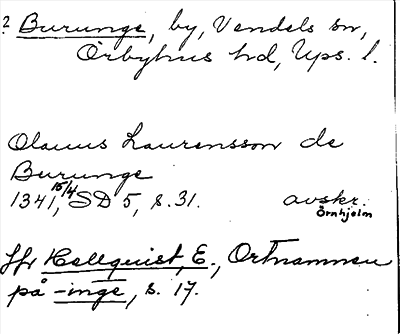 ? Burunge, by, Vendels sn,
Örbyhus hd, Ups. l.
Olauus Laurensson de
Burunge
1341, 15/4, SD 5, s. 31. avskr.
Örnhjelm
Jfr Hellquist, E., Ortnamnen
på -inge, s. 17.